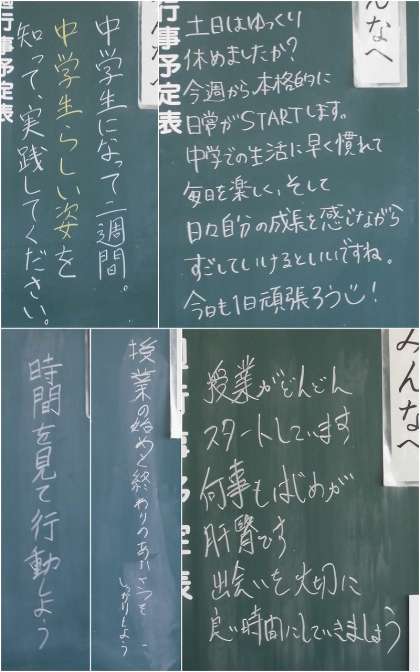 中学生になって二週間。
中学生らしい姿を
知って、実践してください。
行事予定表
んなへ
土日はゆっくり
休めましたか?
今週から本格的に
日常がSTARTします。
中学での生活に早く慣れて
毎日を楽しく、そして
日々自分の成長を感じながら
すごしていけるといいですね。
今日も1日頑張ろうじ!
行事予定表
時間を見て行動しよう
授業の始めと終わりのあいさつを
しっかりしよう
行事予定表
みんなへ
授業がどんどん
スタートしています
何事もはじめが
肝腎です
出会いを大切に
良い時間にしていきましょう